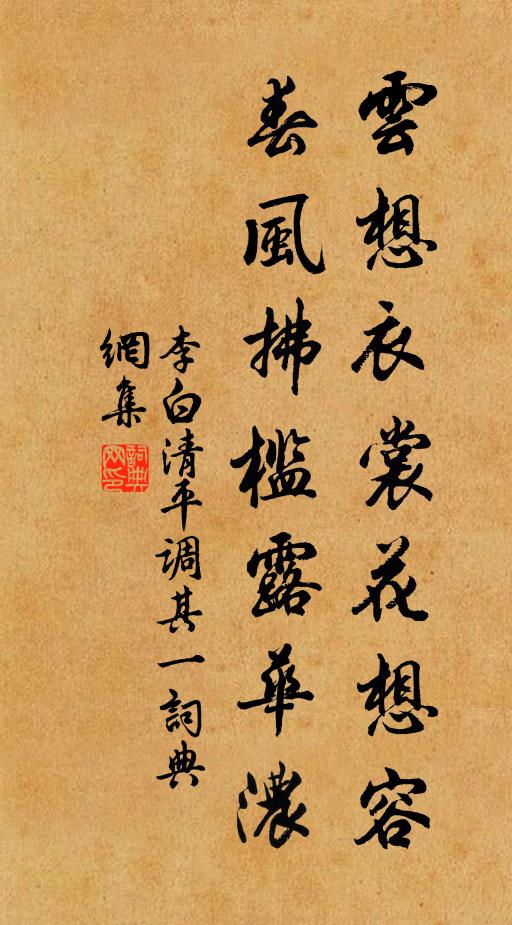 雲想衣裳花想容
春風拂檻露華濃
李白清平調其一詞典
網集
詞典網印